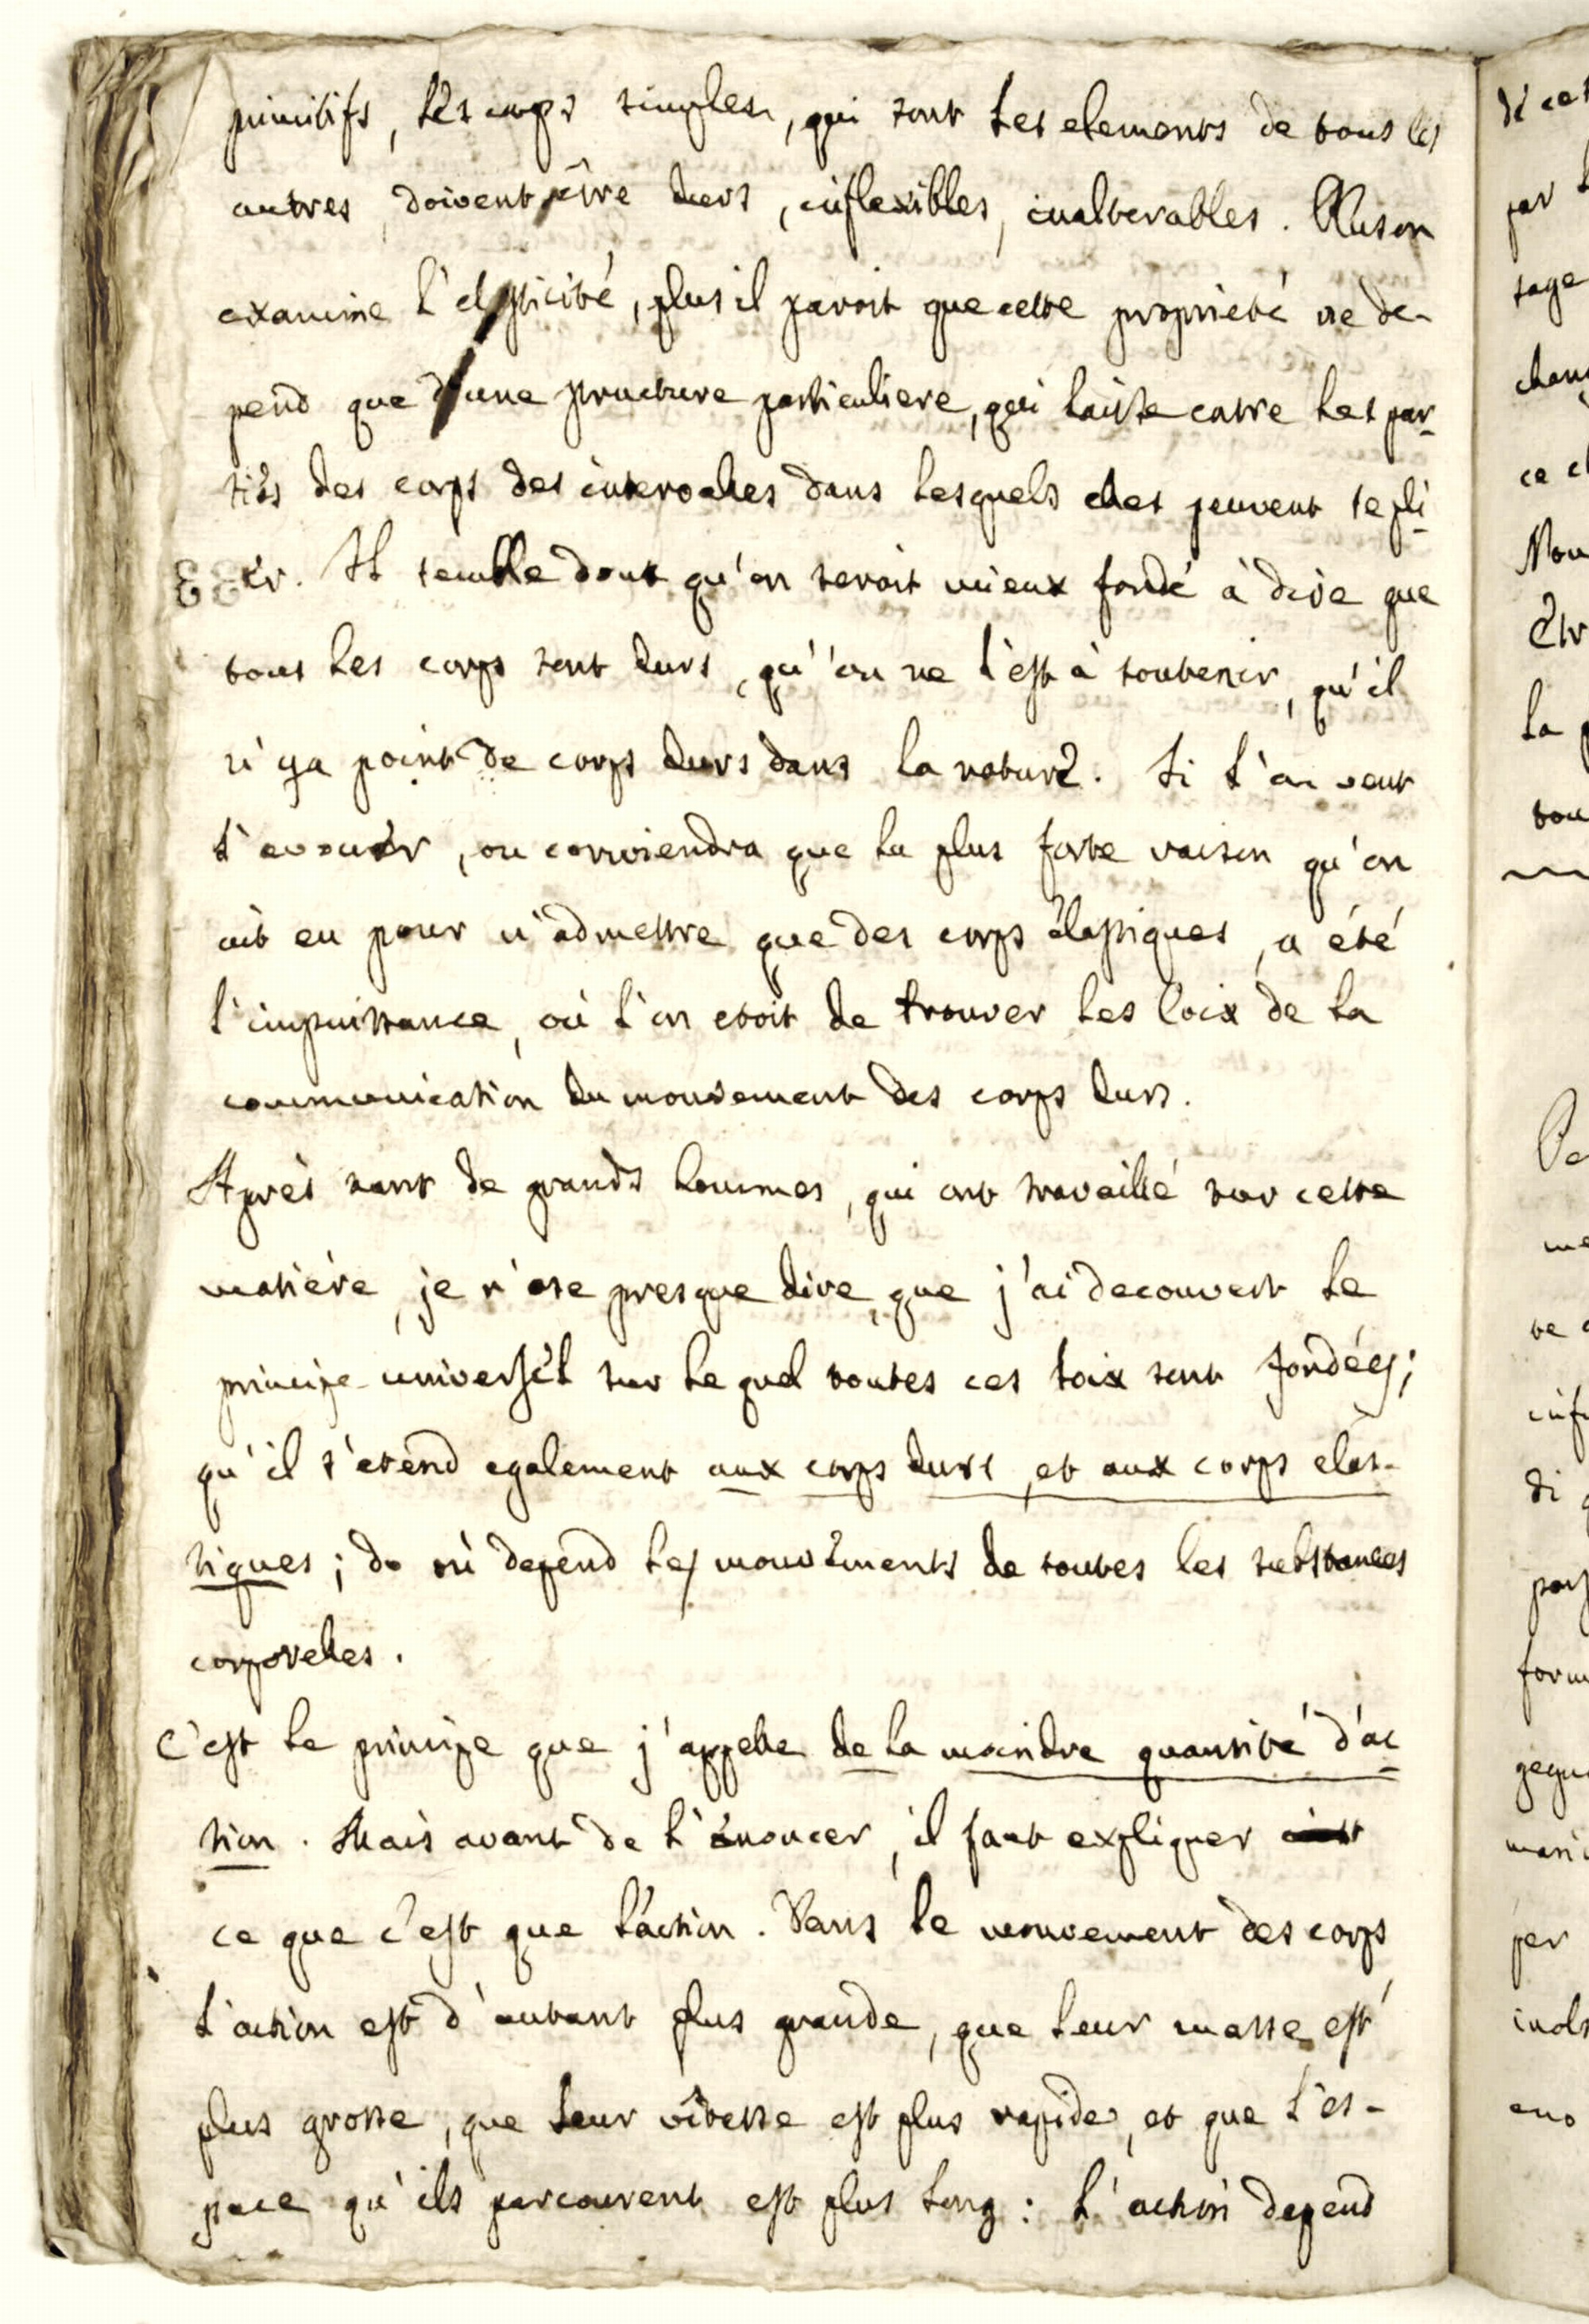 primitifs, les corps simples, qui sont les elements de tous les
autres, doivent être durs, inflexibles, inalterables. Plus on
examine l'elasticité, plus il paroit que cette proprieté ne de-
pend que d'une structure particuliere, qui laisse entre les par-
ties des corps des intervalles dans lesquels elles peuvent se pli-
er. Il semble dont qu'on seroit mieux fondé à dire que
tous les corps sont durs, qu'on ne l'est à soutenir, qu'il
n'ya point de corps durs dans la nature. Si l'on veut
l'avouer, on conviendra que la plus forte raison qu'on
ait eu pour n'admettre que des corps élastiques, a été
l'impuissance, où l'on etoit de trouver les loix de la
communication du mouvement des corps durs.
Après tant de grands hommes, qui ont travaillé sur cette
matière, je n'ose presque dire, que j'ai decouvert le
principe universel sur le quel toutes ces loix sont fondées;
qu'il s'etend egalement aux corps durs, et aux corps elas-
tiques; de où depend les mouvements de toutes les substances
corporelles.
C'est le principe que j'appelle de la moindre quantité d'ac-
tion. Mais avant de l'énoncer, il faut expliquer
ce que c'est que l'action. Dans le mouvement des corps
l'action est d'autant plus grande, que leur masse est
plus grosse, que leur vîtesse est plus rapide, et que l'es-
pace qu'ils parcourent est plus long: l'action depend
di ces
par
sage
chan
ce
Nou
être
la
tou
me
di
form
per